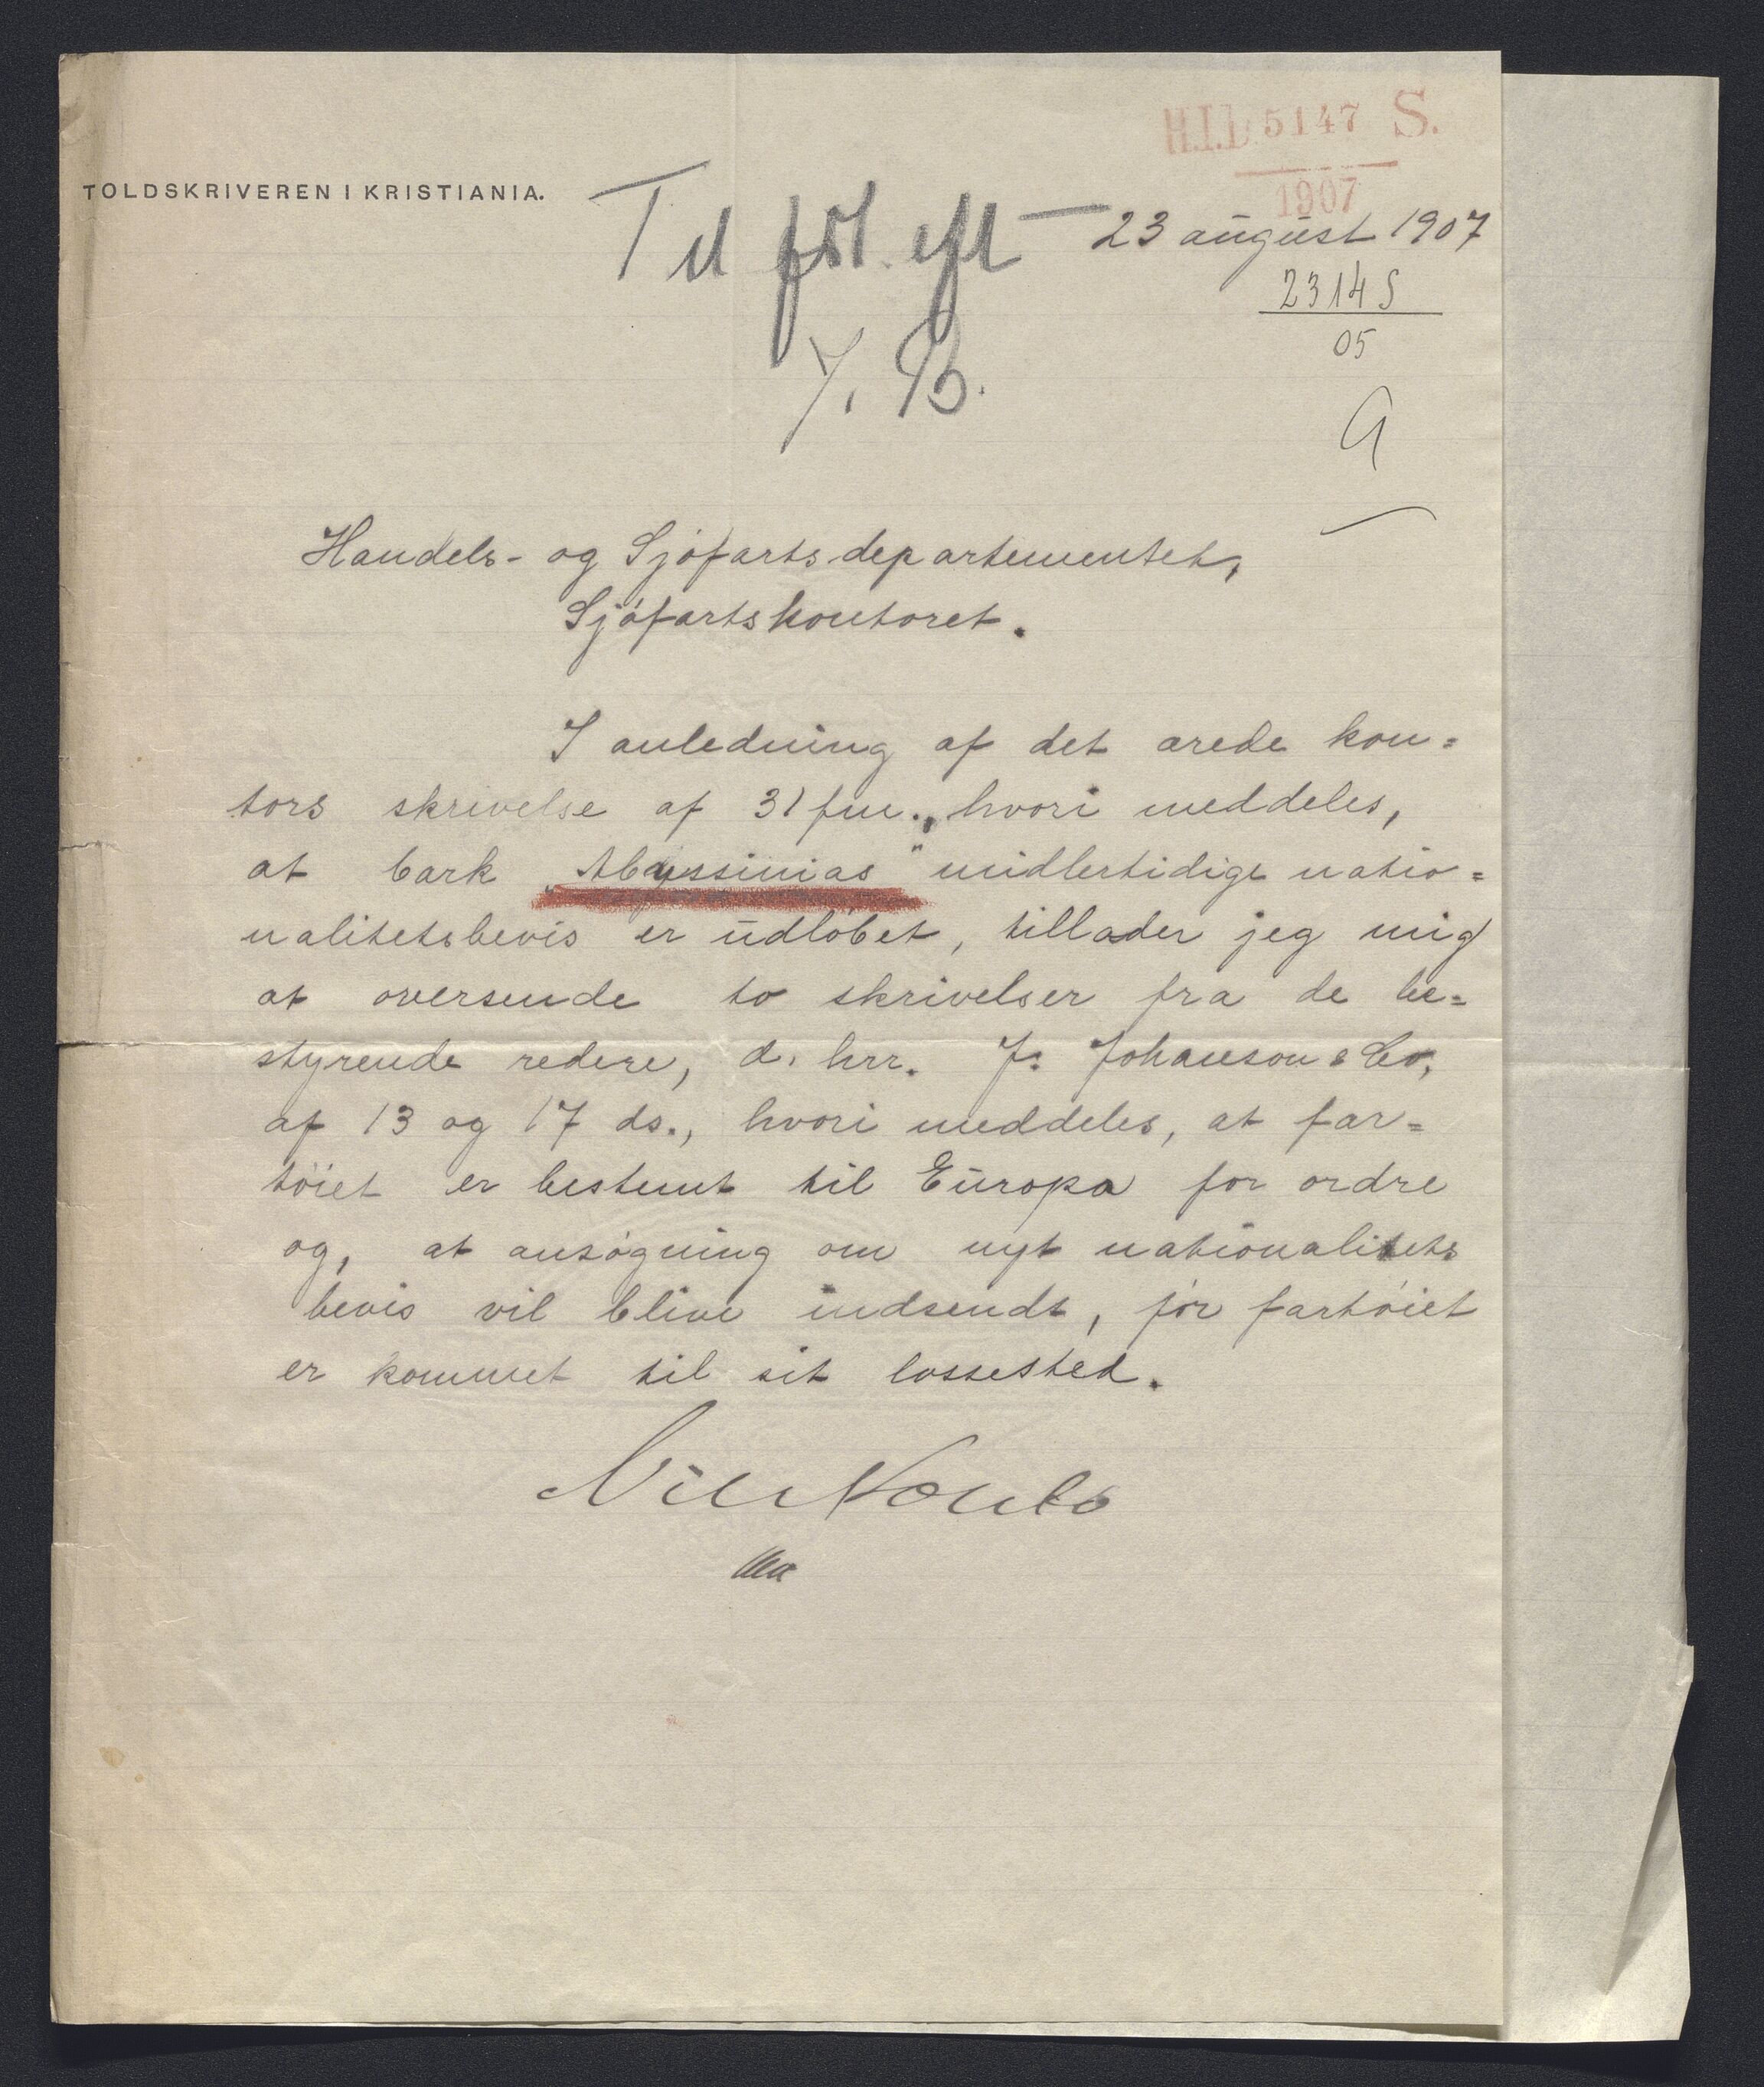 H.I.D. 5147 S.
1907
TOLDSKRIVEREN I KRISTIANIA.
Til føl. eft
23 august 1907
2314 S
05
Handels- og Sjøfartsdepartementet,
Sjøfartskontoret.
I anledning af det ærede kon=
tors skrivelse af 31 fm., hvori meddeles,
at bark „Abyssinias" midlertidige natio=
nalitetsbevis er udløbet, tillader jeg mig
at oversende to skrivelser fra de be=
styrende redere, d. hrr. J. Johanson & Co,
af 13 og 17 ds., hvori meddeles, at far=
tøiet er bestemt til Europa for ordre
og, at ansøgning om nyt nationalitets
bevis vil blive indsendt, før fartøiet
er kommet til sit lossested.